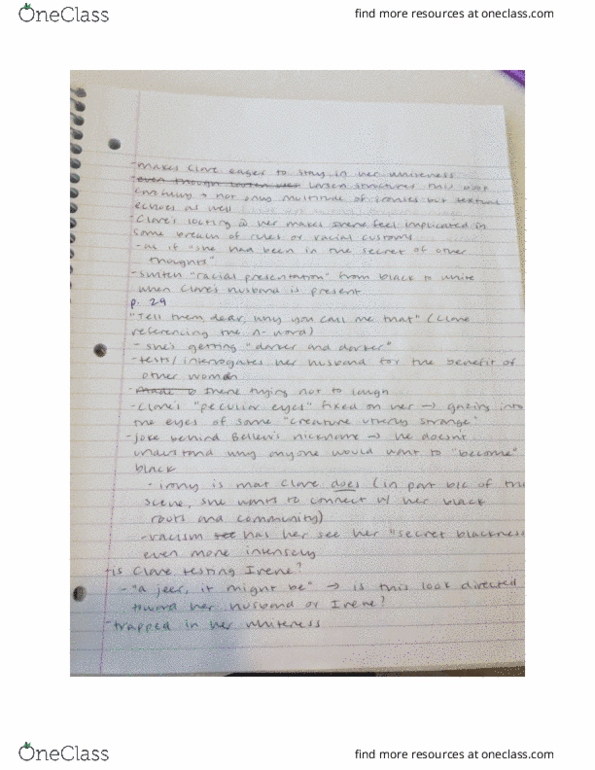 OneClass
find more resources at oneclass.com
-makes Clare eager to stay in her whiteness
-even though Larsen structures this
not only multitude of ironies but textual
echoes as well
-Clare's looking @ her makes Irene feel implicated in
some breach of rules or racial customs
-as if "she had been in the secret of other
thoughts"
-switch "racial presentation" from black to white
when Clare's husband is present
p. 29
"Tell them, dear, why you call me that" (Clare
referencing the n-word)
-she's getting "darker and darker"
-tests/interrogates her husband for the benefit of
other women
-made Irene trying not to laugh
-Clare's "peculiar eyes" fixed on her → gazing into
the eyes of some "creature utterly strange"
-joke behind Bellew's nickname → he doesn't
understand why anyone would want to "become"
black
-irony is that Clare does (in part b/c of this
scene, she wants to connect w/ her black
roots and community)
-racism has her see her "secret blackness"
even more intensely
-is Clare testing Irene?
-"a jeer, it might be" → is this look directed
toward her husband or Irene?
-trapped in her whiteness
OneClass
find more resources at oneclass.com